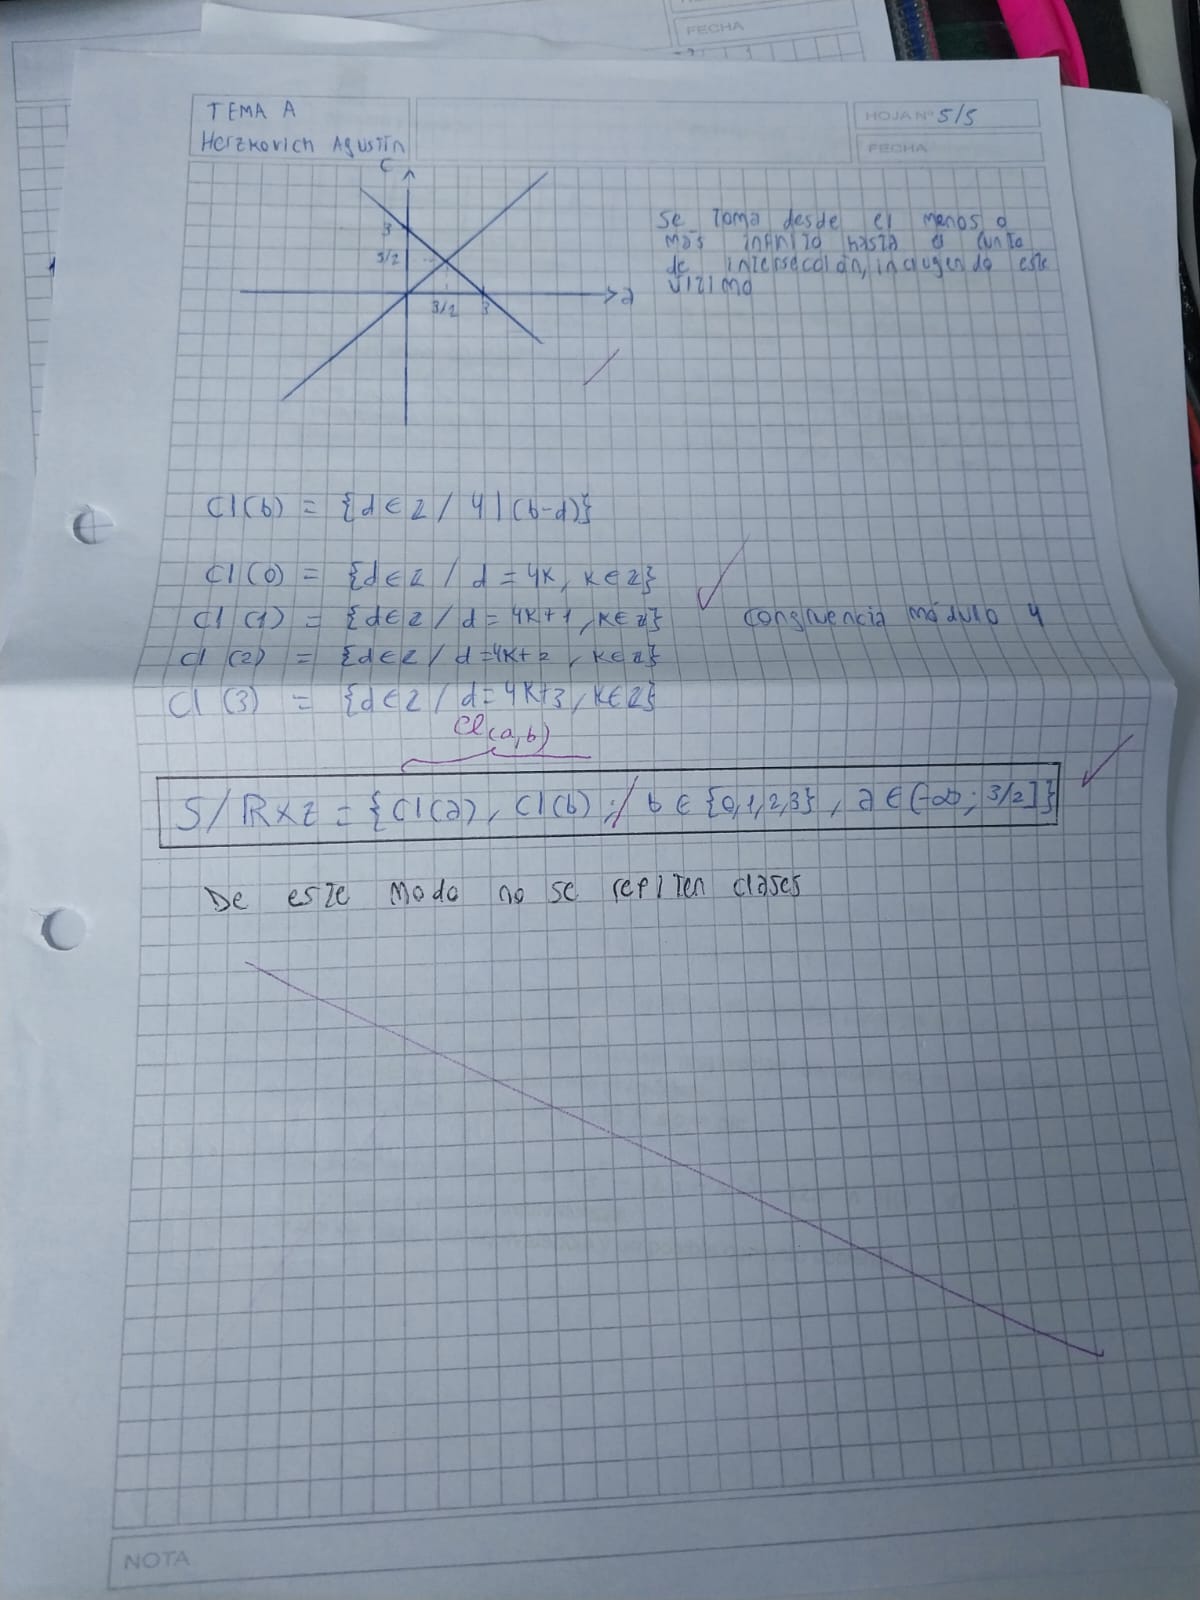 FECHA
TEMA A
Herzkovich Agustín
HOJA Nº 5/5
FECHA
c
3
3/2
3/2
3
a
se toma desde el menos o
mas infinito hasta el punto
de intersección, incluyendo este
último
Cl(b) = {d∈Z / 4|(b-d)}
Cl(0) = {d∈Z / d=4K, K∈Z}
Cl(1) = {d∈Z / d=4K+1, K∈Z} congruencia módulo 4
Cl(2) = {d∈Z / d=4K+2, K∈Z}
Cl(3) = {d∈Z / d=4K+3, K∈Z}
Cl(a,b)
S/RxZ = {Cl(a), Cl(b) ; / b∈{0,1,2,3}, a∈(-∞; 3/2]}
De este modo no se repiten clases
NOTA